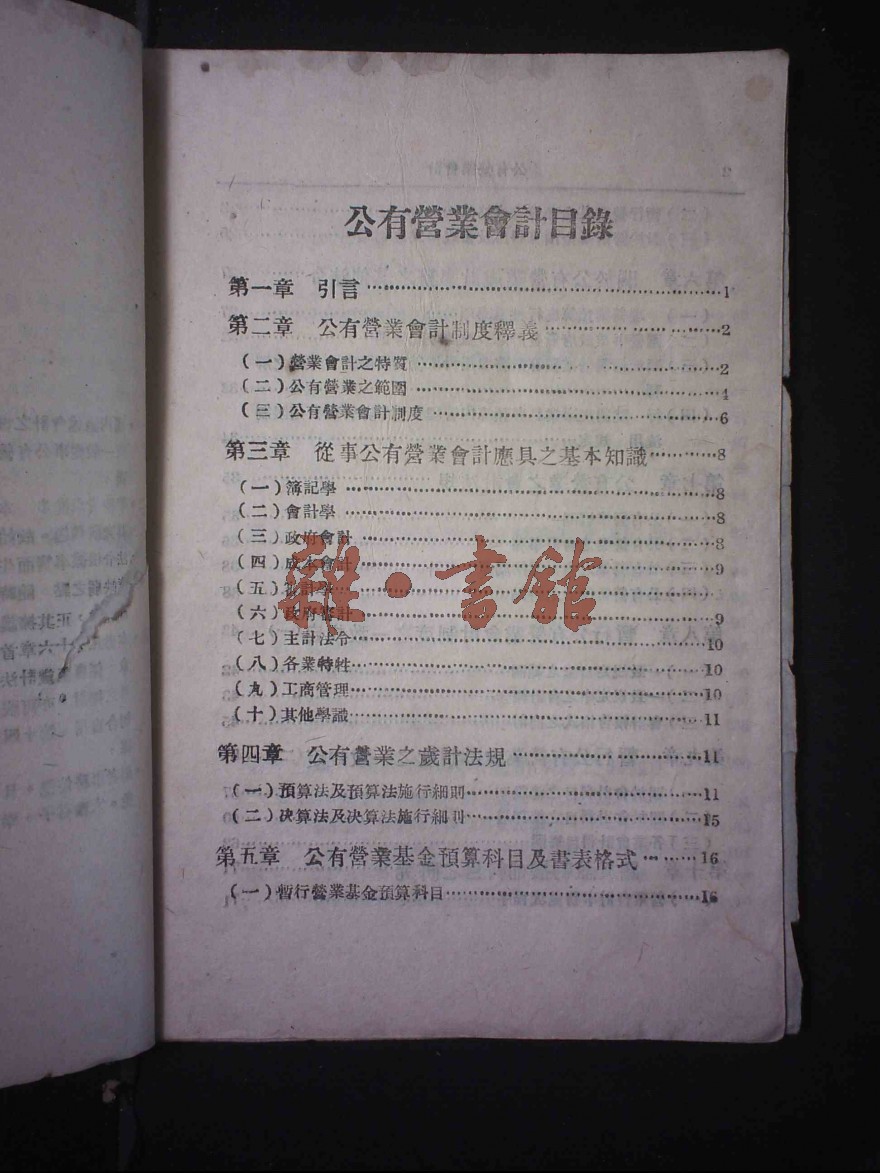 公有營業會計目錄
第一章 引言……1
第二章 公有營業會計制度釋義……2
(一)營業會計之特質……2
(二)公有營業之範圍……4
(三)公有營業會計制度……6
第三章 從事公有營業會計應具之基本知識……8
(一)簿記學……8
(二)會計學……8
(三)政府會計……8
(四)成本會計……9
(五)計學……
(六)政府審計……9
(七)主計法令……10
(八)各業特性……10
(九)工商管理……10
(十)其他學識……11
第四章 公有營業之歲計法規……11
(一)預算法及預算法施行細則……11
(二)決算法及決算法施行細則……15
第五章 公有營業基金預算科目及書表格式……16
(一)暫行營業基金預算科目……16
雜·書館